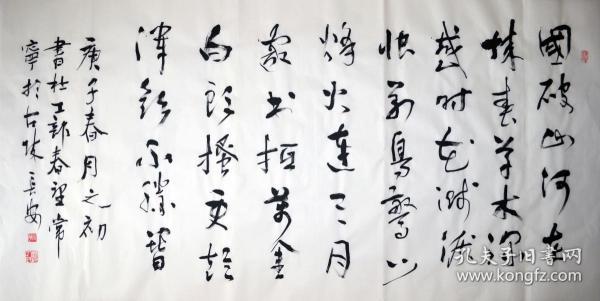 國破山河在
城春草木深
感时花濺淚
恨别鳥驚心
烽火連三月
家书抵萬金
白頭搔更短
渾欲不勝簪
庚子春月之初
書杜工部春望常
寧於古城長安
孔夫子旧书网
www.kongfz.com